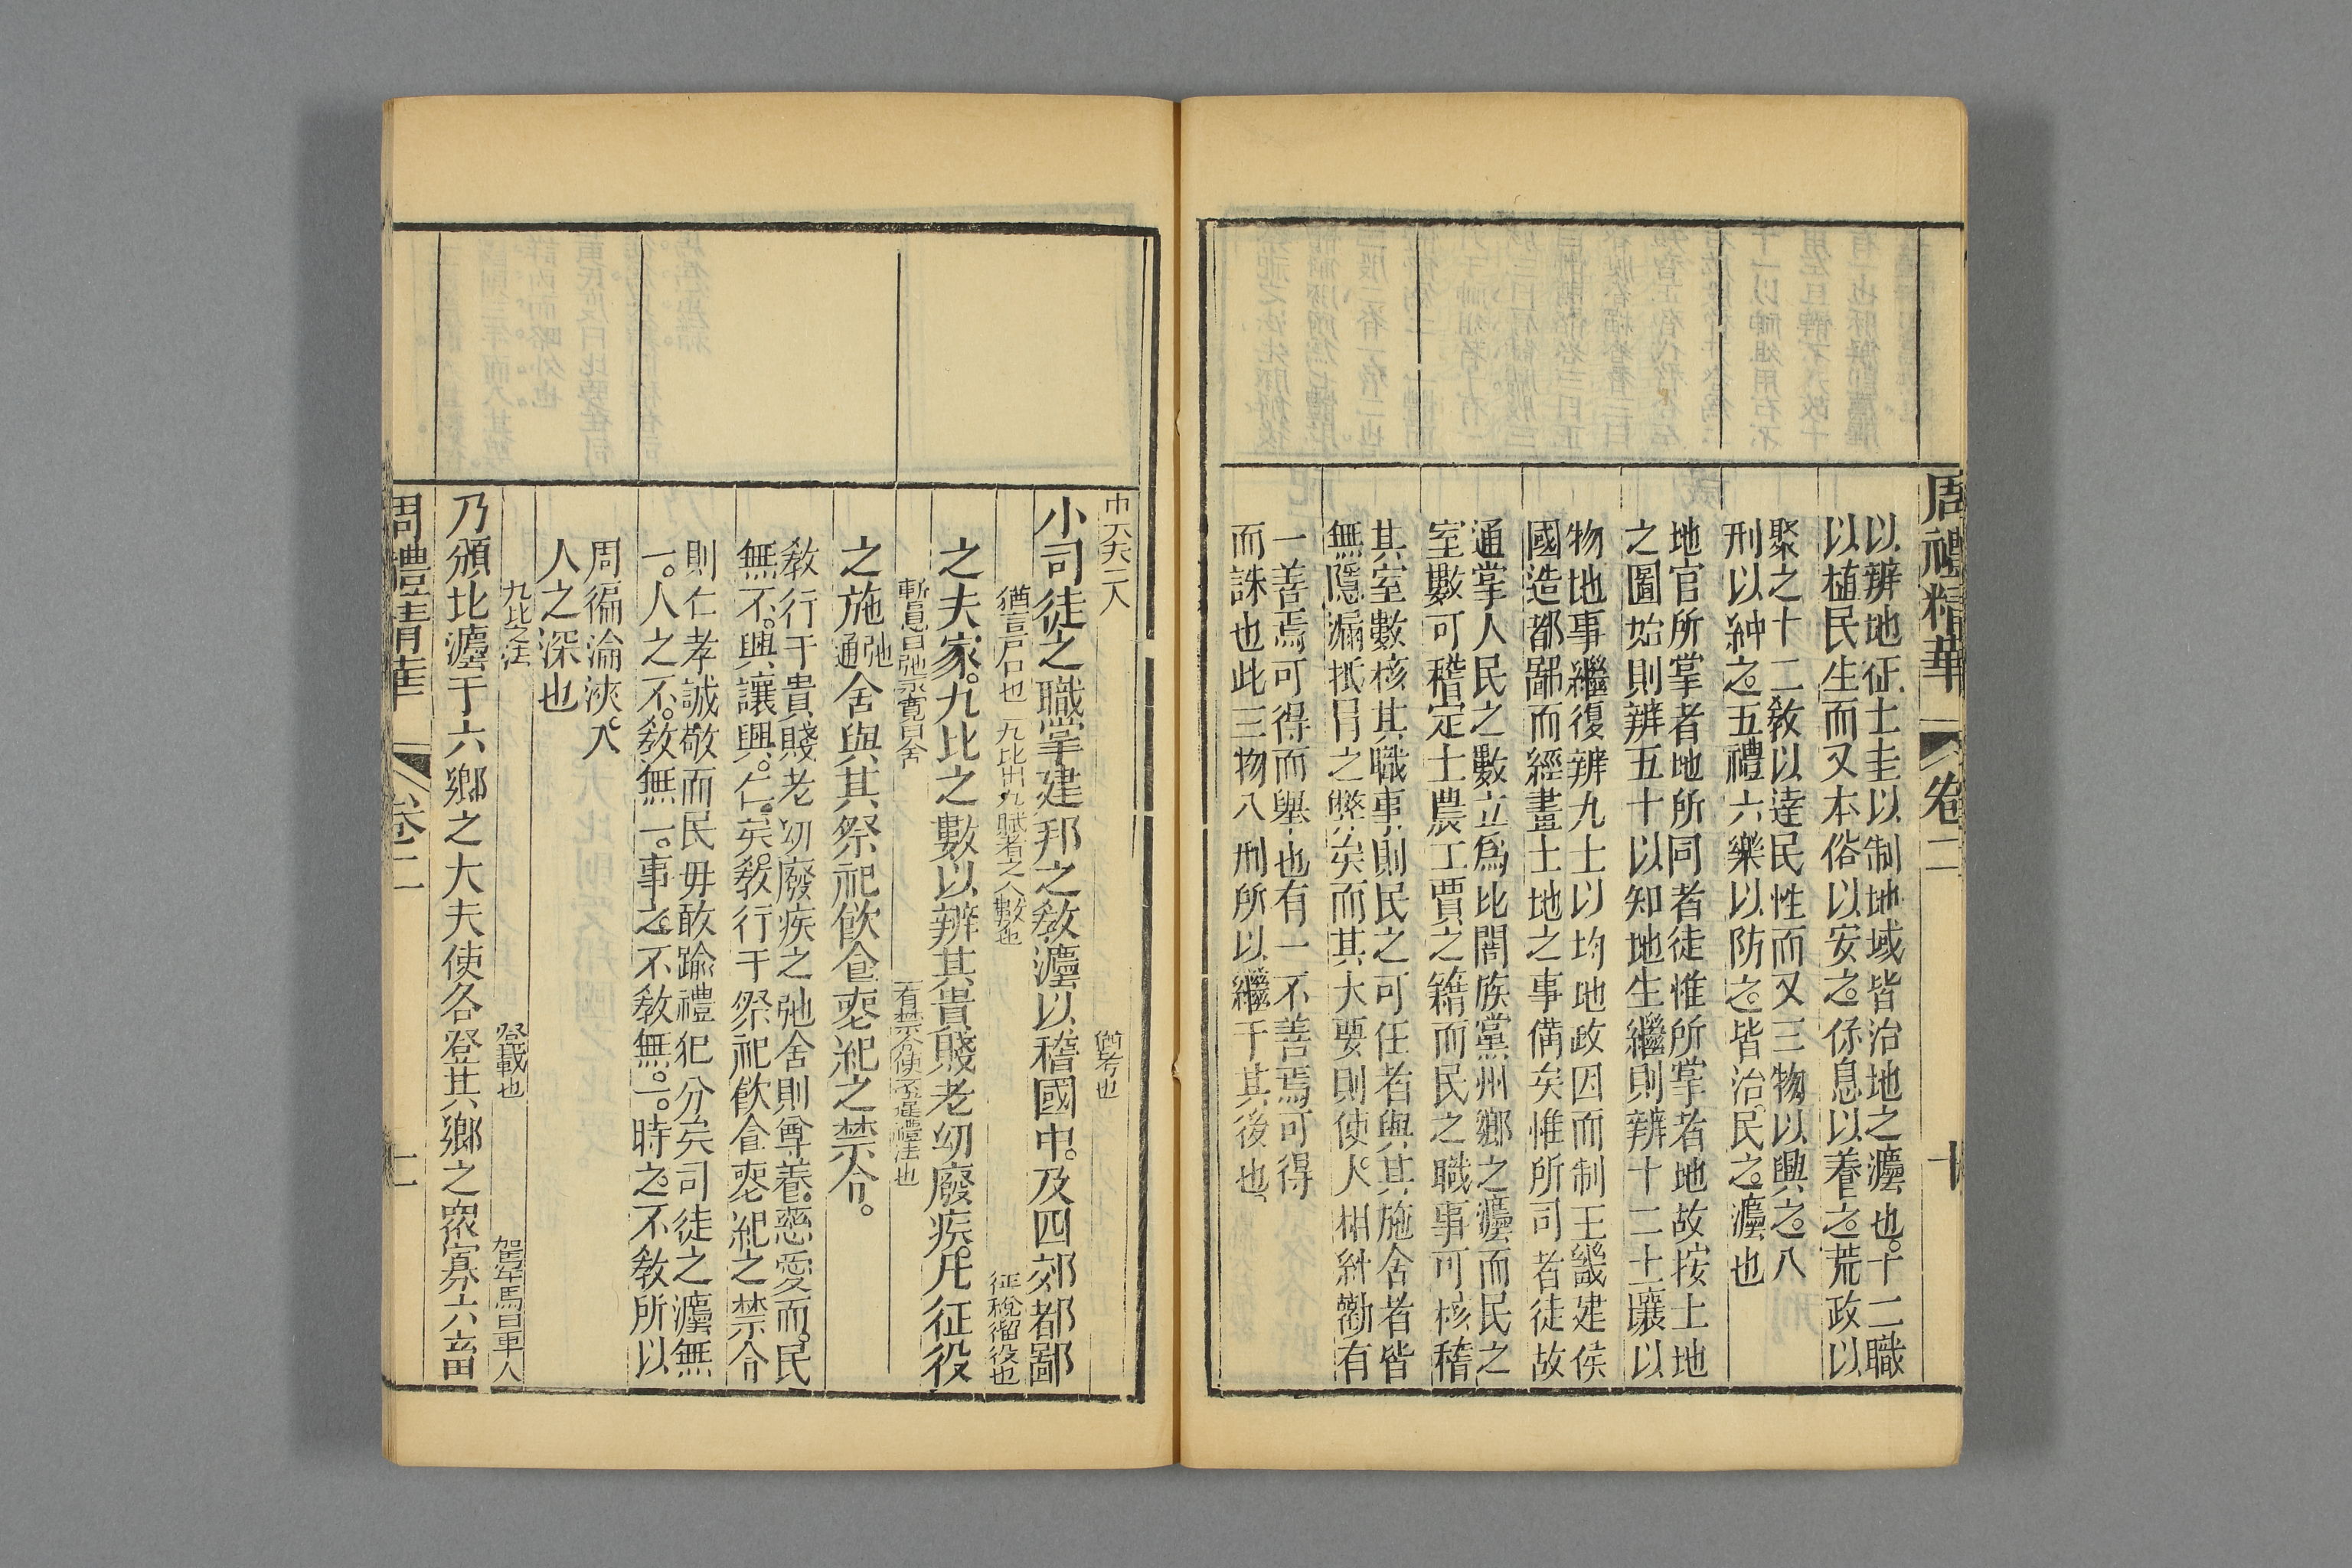 周禮精華 卷二 十
以辨地征土圭以制地域皆治地之灋也十二職
以植民生而又本俗以安之保息以養之荒政以
聚之十二敎以達民性而又三物以興之八
刑以糾之五禮六樂以防之皆治民之灋也
地官所掌者地所同者徒惟所掌者地故按土地
之圖始則辨五十以知地生繼則辨十二土壤以
物地事繼復辨九土以均地政因而制王畿建侯
國造都鄙而經畫土地之事備矣惟所司者徒故
通掌人民之數立爲比閭族黨州鄉之灋而民之
室數可稽定士農工賈之籍而民之職事可核稽
其室數核其職事則民之可任者與其施舍者皆
無隱漏抵冒之弊矣而其大要則使人相糾勸有
一善焉可得而舉也有一不善焉可得
而誅也此三物八刑所以繼于其後也
中大夫二人
猶考也
小司徒之職掌建邦之敎灋以稽國中及四郊都鄙
猶言戶口也 九比出九賦者之人數也 征稅徭役也
之夫家九比之數以辨其貴賤老幼廢疾凡征役
暫息曰弛永寬曰舍 有禁令使不違禮法也
之施弛通舍與其祭祀飮食喪紀之禁令
敎行于貴賤老幼廢疾之弛舍則尊養慈愛而民
無不興讓興仁矣敎行于祭祀飮食喪紀之禁令
則仁孝誠敬而民毋敢踰禮犯分矣司徒之灋無
一人之不敎無一事之不敎無一時之不敎所以
周徧淪浹入
人之深也
九比之法 登載也 駕牛馬曰車人
乃頒比灋于六鄉之大夫使各登其鄉之衆寡六畜
周禮精華 卷二 十一